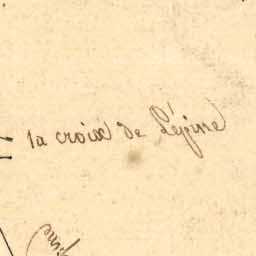 la croix de Lépine